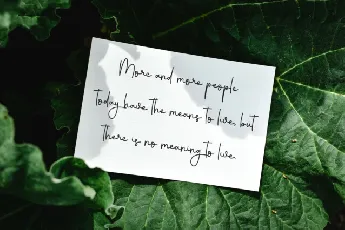 More and more people
Today have the means to live, but
there is no meaning to live.